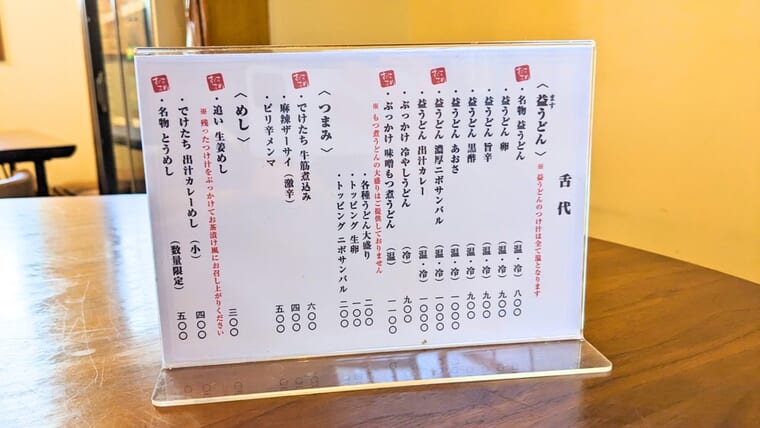 舌代
〈益うどん〉 ※ 益うどんのつけ汁は全て温となります
ます
・名物 益うどん （温・冷） 八〇〇
・益うどん 卵 （温・冷） 九〇〇
・益うどん 旨辛 （温・冷） 九〇〇
・益うどん 黒酢 （温・冷） 九〇〇
・益うどん あおさ （温・冷） 一〇〇〇
・益うどん 濃厚ニボサンバル （温・冷） 一〇〇〇
・益うどん 出汁カレー （温・冷） 一〇〇〇
・ぶっかけ 冷やしうどん （冷） 九〇〇
・ぶっかけ 味噌もつ煮うどん （温） 一一〇〇
※ もつ煮うどんの大盛りはご提供しておりません
・各種うどん大盛り 二〇〇
・トッピング 生卵 一〇〇
・トッピング ニボサンバル 二〇〇
〈つまみ〉
・でけたち 牛筋煮込み 六〇〇
・麻辣ザーサイ（激辛） 四〇〇
・ピリ辛メンマ 五〇〇
〈めし〉
・追い 生姜めし 三〇〇
※ 残ったつけ汁をぶっかけてお茶漬け風にお召し上がりください
・でけたち 出汁カレーめし （小） 四〇〇
・名物 とうめし （数量限定） 五〇〇